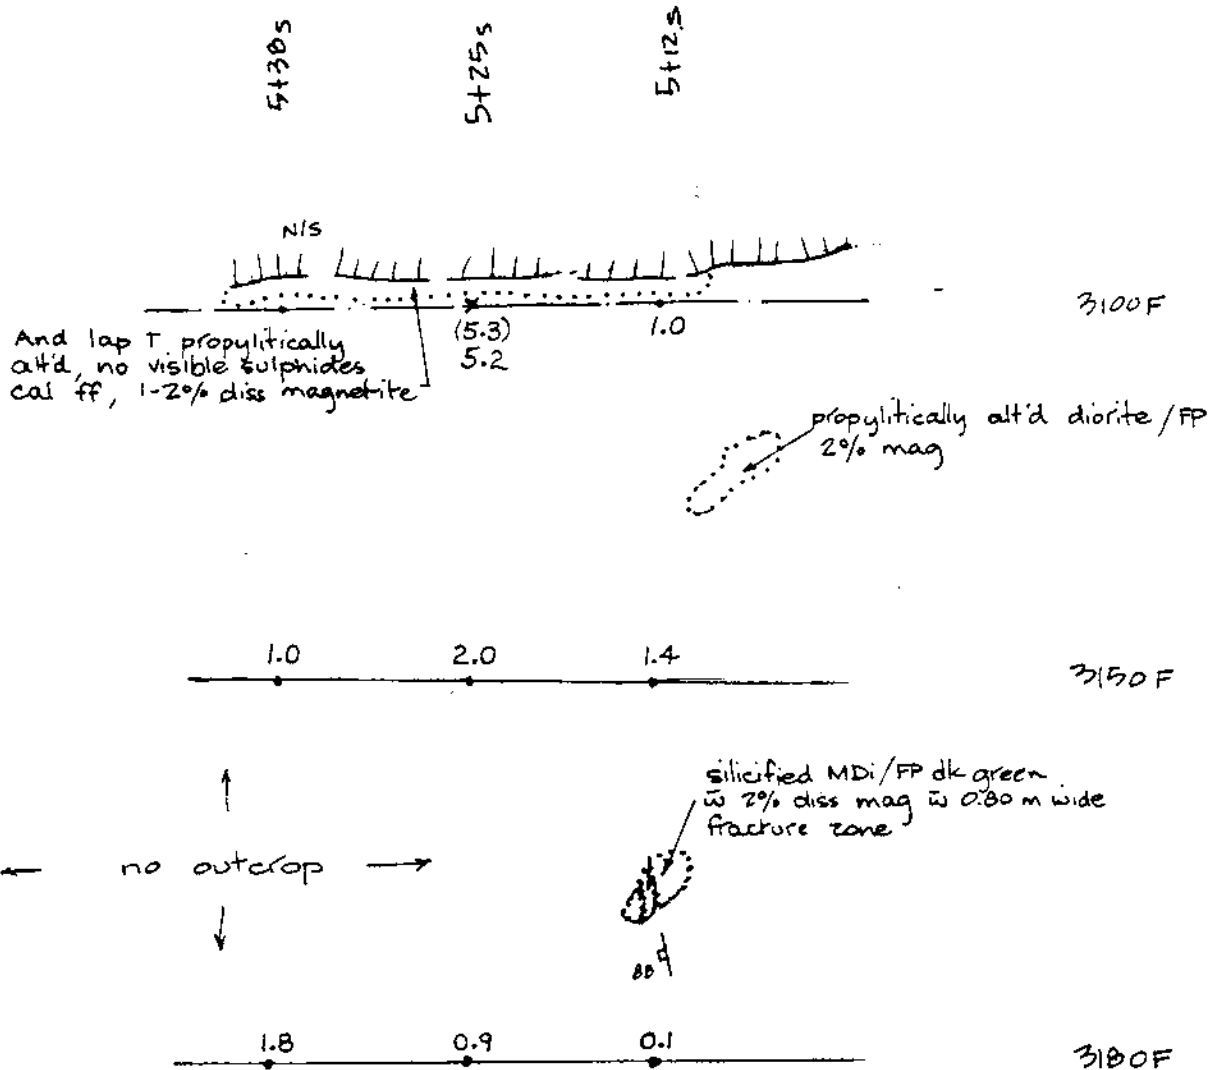 5+38s
5+25s
5+12s
N/S
3100F
(5.3)
5.2
1.0
And lap T propylitically
alt'd, no visible sulphides
cal ff, 1-2% diss magnetite
propylitically alt'd diorite/FP
2% mag
1.0
2.0
1.4
3150F
silicified MDi/FP dk green
w̄ 2% diss mag w̄ 0.80 m wide
fracture zone
no outcrop
1.8
0.9
0.1
3180F